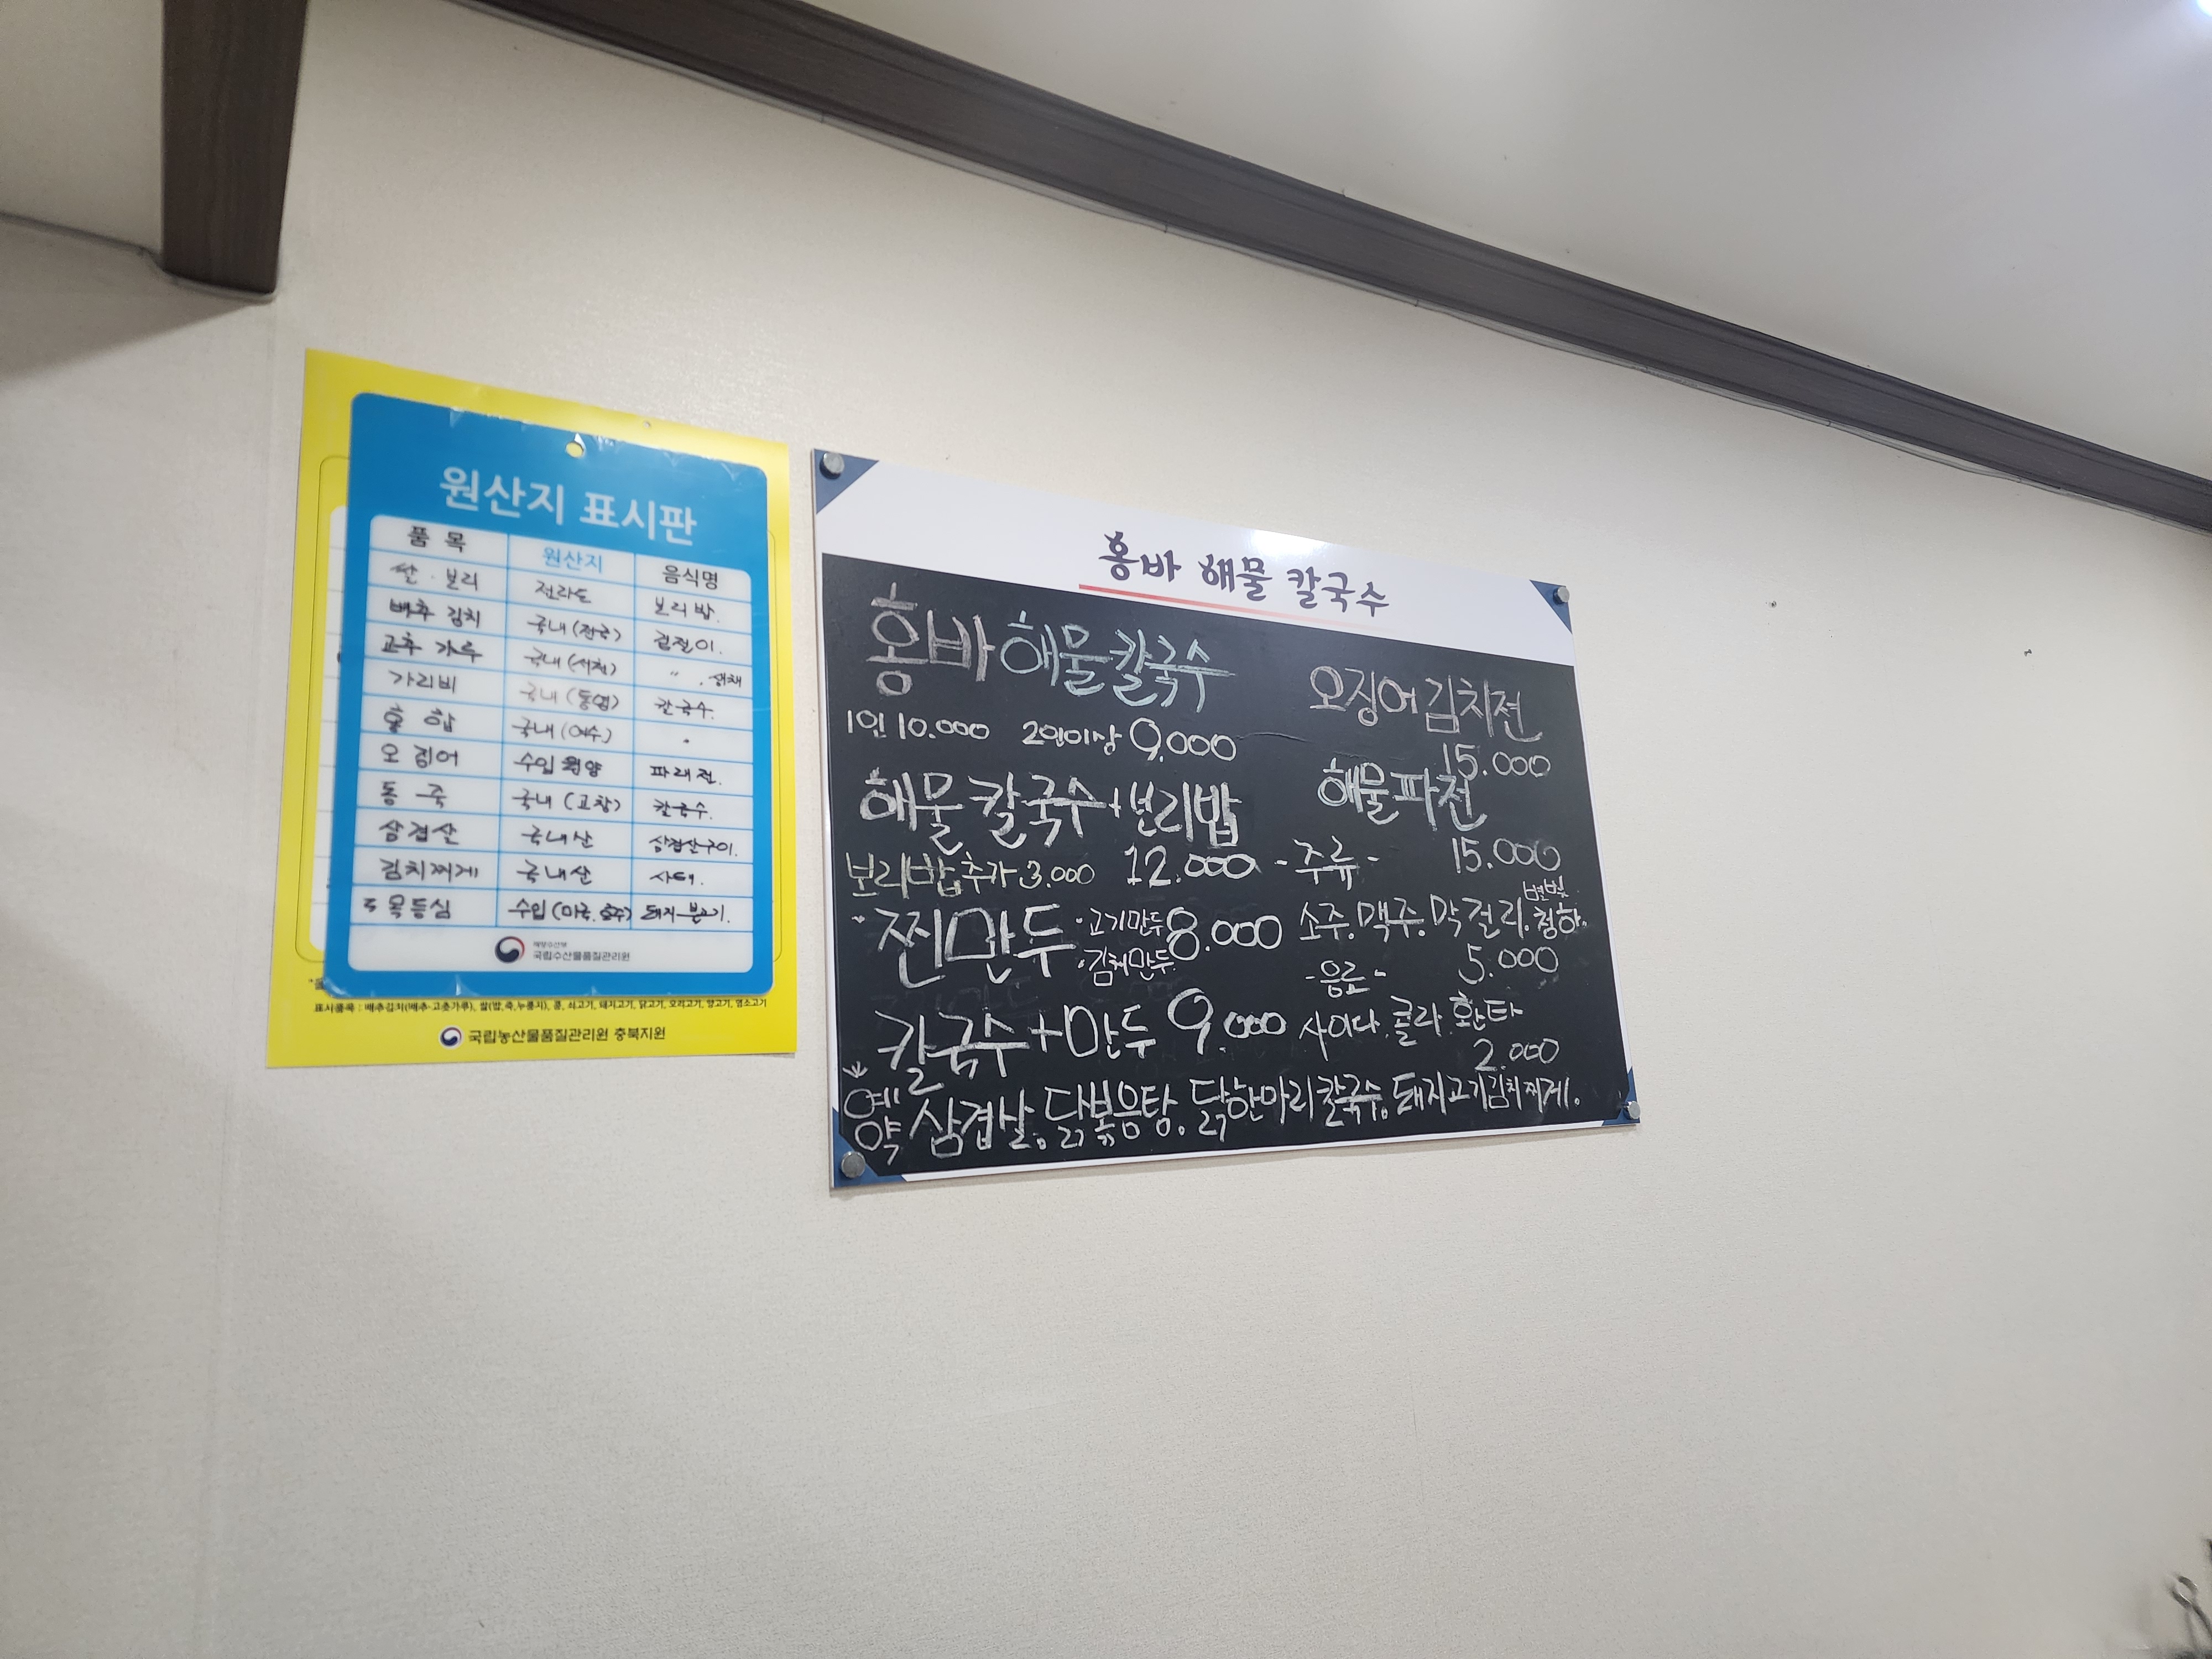 원산지 표시판
품 목 원산지 음식명
쌀 · 보리 전라도 보리밥.
배추 김치 국내 (전국) 겉절이.
고추 가루 국내 (서천) " . 생채
가리비 국내 (통영) 칼국수.
홍 합 국내 (여수)
오 징어 수입 원양 파래전.
동 죽 국내 (고창) 칼국수.
삼겹살 국내산 삼겹살구이.
김치찌게 국내산
목등심 수입 (미국, 호주)
해양수산부
국립수산물품질관리원
표시품목 : 배추김치(배추·고춧가루), 쌀(밥,죽,누룽지), 콩, 쇠고기, 돼지고기, 닭고기, 오리고기, 양고기, 염소고기
국립농산물품질관리원 충북지원
홍바 해물 칼국수
홍바 해물칼국수
1인 10.000 2인이상 9,000
해물칼국수+보리밥
보리밥추가 3.000 12.000
찐만두 ·고기만두 8.000
·김치만두
칼국수+만두 9.000
오징어김치전
15.000
해물파전
15.000
-주류-
별빛
소주. 맥주. 막걸리. 청하.
5.000
-음료-
사이다. 콜라. 환타
2.000
예약 삼겹살. 닭볶음탕. 닭한마리칼국수. 돼지고기김치찌게.